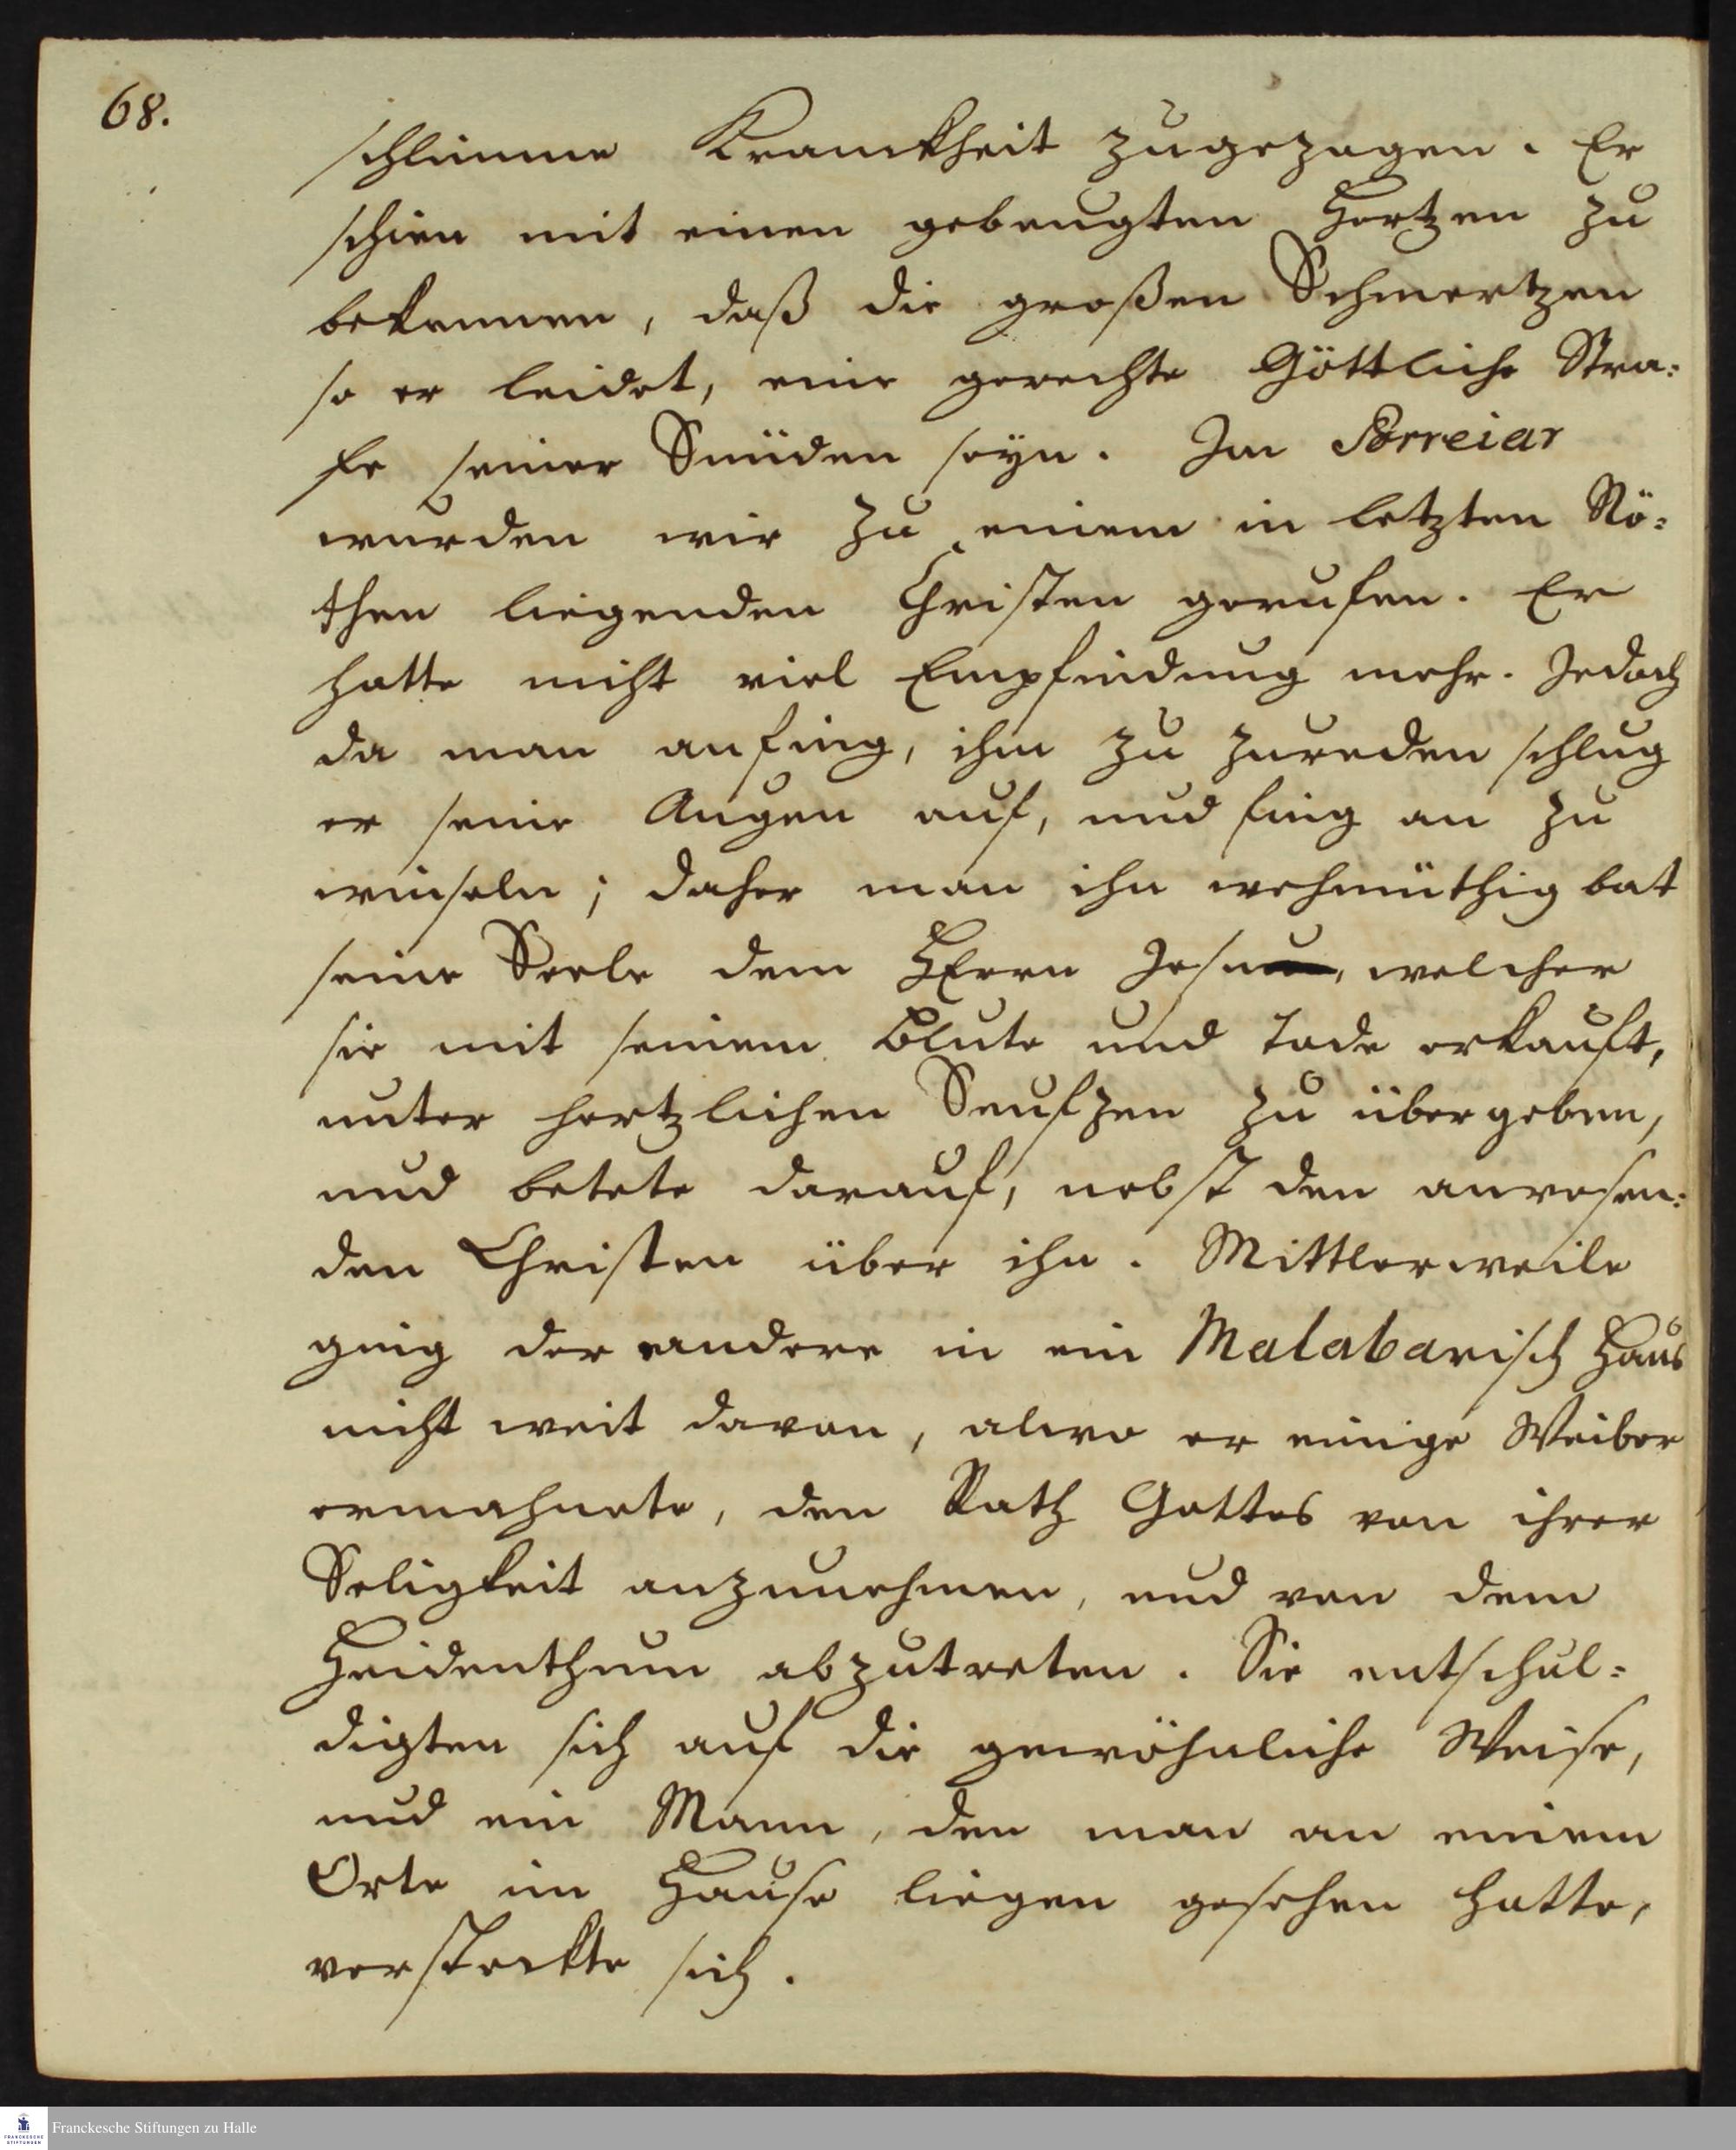 68.
schlimme Kranckheit zugezogen. Er
schien mit einen gebeugten Hertzen zu
bekennen, daß die großen Schmertzen
so er leidet, eine gerechte Göttliche Stra-
fe seiner Sünden seyn. Im Porreiar
wurden wir zu einem in letzten Nö-
then liegenden Christen gerufen. Er
hatte nicht viel Empfindung mehr. Jedoch
da man anfing, ihm zu zureden schlug
er seine Augen auf, und fing an zu
winseln; daher man ihn wehmüthig bat
seine Seele dem HErrn Jesu, welcher
sie mit seinem Blute und Tode erkauft,
unter hertzlichen Seufzen zu übergeben,
und betete darauf, nebst den anwesen-
den Christen über ihn. Mittlerweile
ging der andere in ein Malabarisch Haus
nicht weit davon, alwo er einige Weiber
ermahnete, den Rath Gottes von ihrer
Seligkeit anzunehmen, und von dem
Heidenthum abzutreten. Sie entschul-
digten sich auf die gewöhnliche Weise,
und ein Mann, den man an einem
Orte im Hause liegen gesehen hatte,
versteckte sich.
Franckesche Stiftungen zu Halle
FRANCKESCHE
STIFTUNGEN